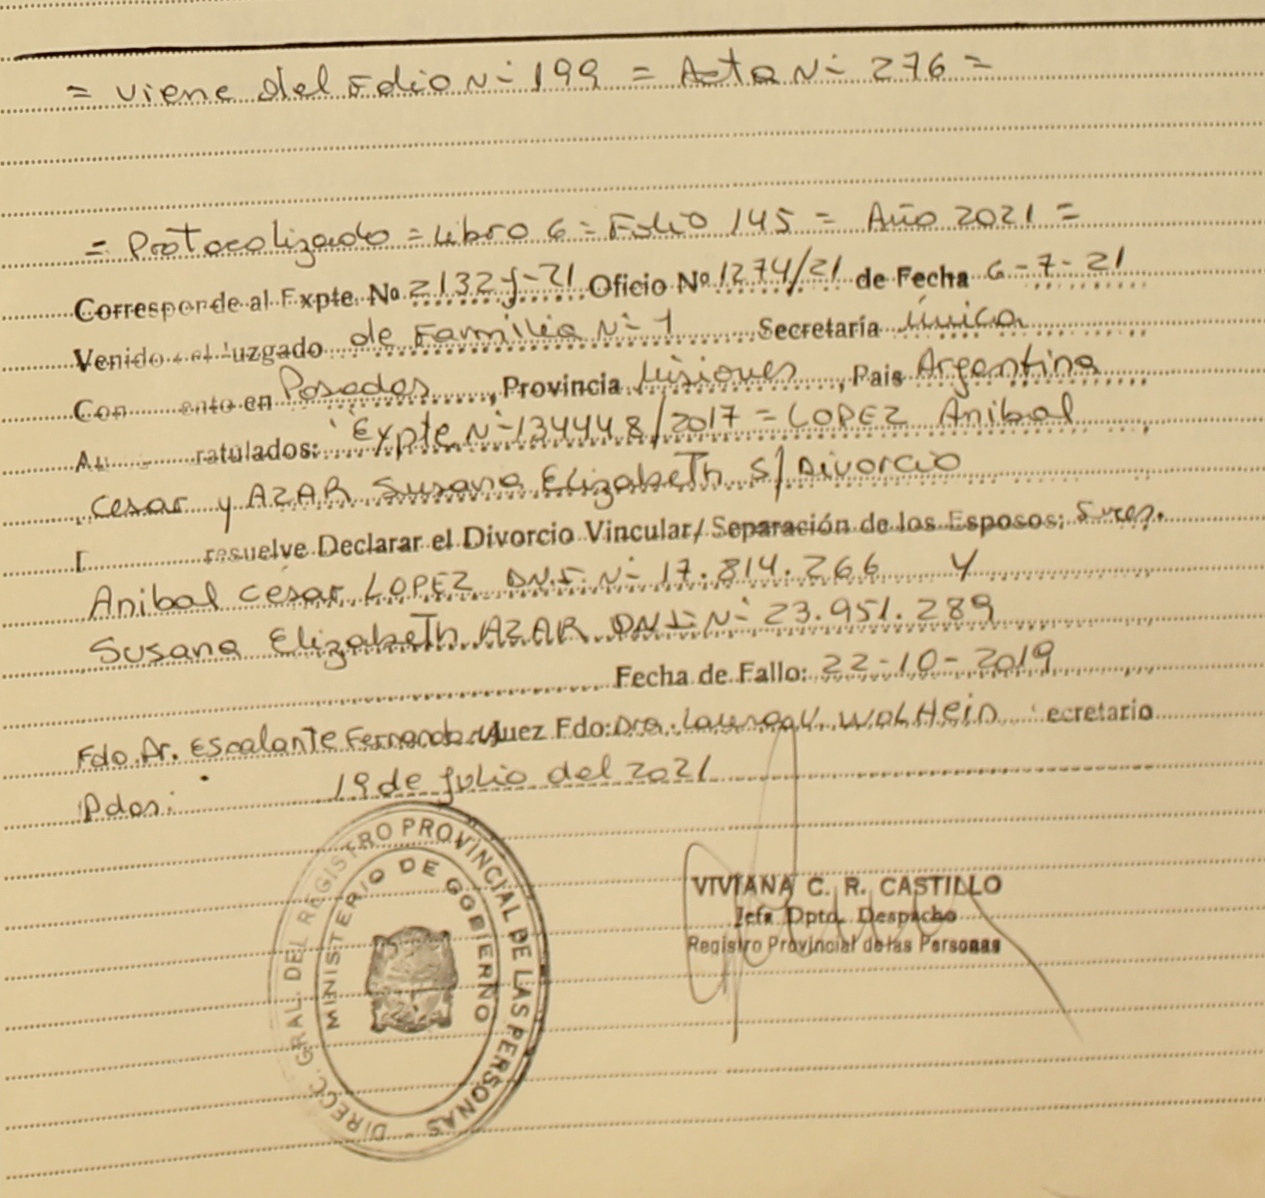 = viene del Folio N- 199 = Acta N- 276 =
= Protocolizado = Libro 6 = Folio 145 = Año 2021 =
Corresponde al Expte. Nº 2132-J-21 Oficio Nº 1274/21 de Fecha 6-7-21
Venido del Juzgado de Familia N- 1 Secretaría única
Con ento en Posadas, Provincia Misiones, Pais Argentina
Au ratulados: "Expte N- 134448/2017 = LOPEZ Anibal
Cesar y AZAR Susana Elizabeth S/ Divorcio
resuelve Declarar el Divorcio Vincular/ Separación de los Esposos: Sres.
Anibal César LOPEZ DN.I. N- 17.814.266 y
Susana Elizabeth AZAR DNI N- 23.951.289
Fecha de Fallo: 22-10-2019
Fdo. Dr. Escalante Fernando Juez Fdo: Dra. ecretario
Pdas: 19 de Julio del 2021
DIREC. GRAL. DEL REGISTRO PROVINCIAL DE LAS PERSONAS -
MINISTERIO DE GOBIERNO
VIVIANA C. R. CASTILLO
Jefa Dpto. Despacho
Registro Provincial de las Personas